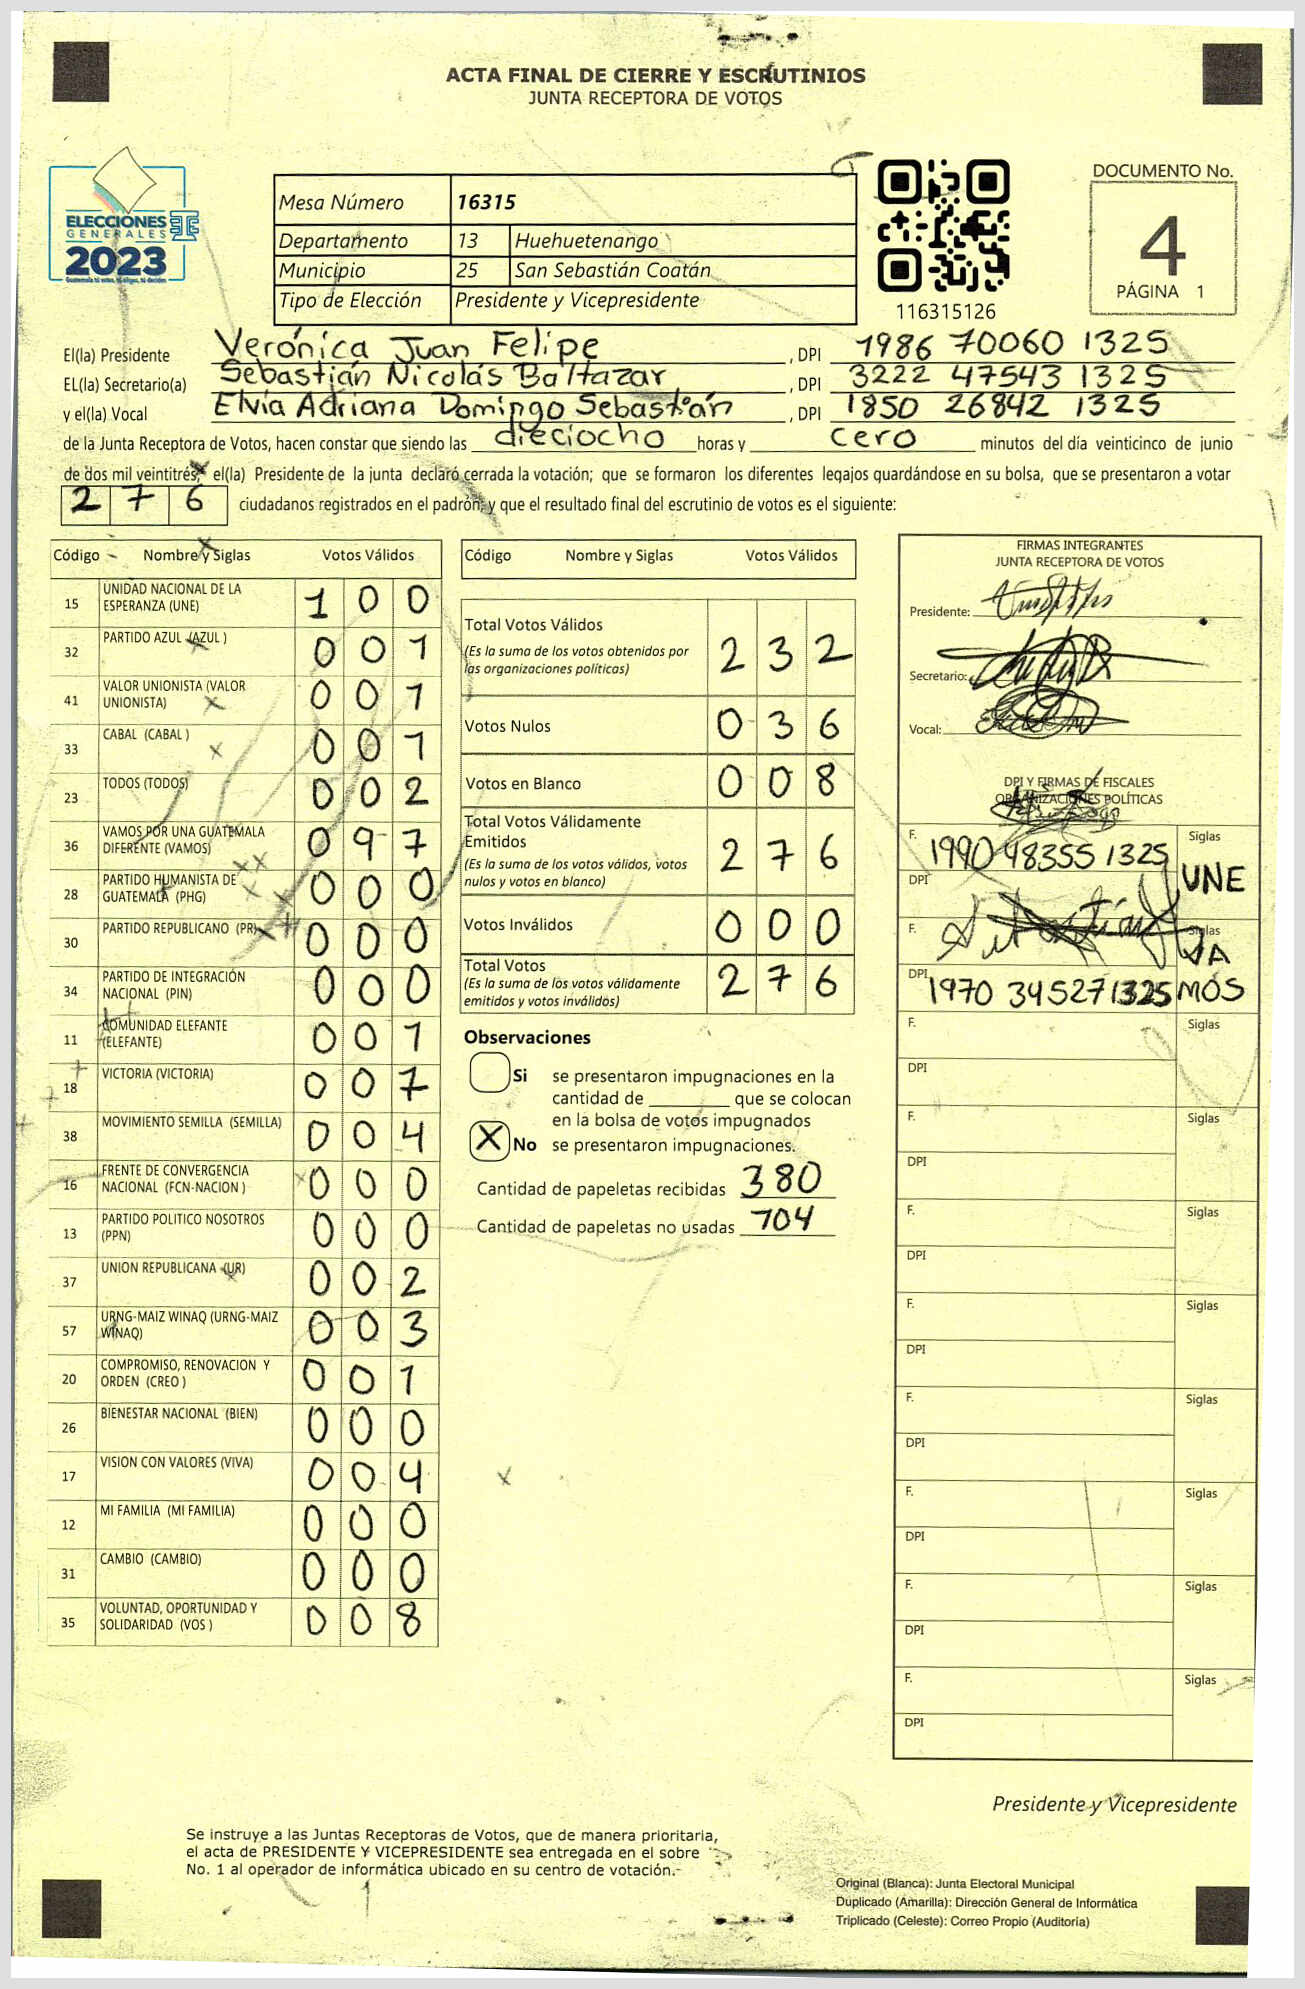 ACTA FINAL DE CIERRE Y ESCRUTINIOS
JUNTA RECEPTORA DE VOTOS
ELECCIONES
GENERALES
2023
Guatemala tú votas, tú eliges, tú decides
Mesa Número 16315
Departamento 13 Huehuetenango
Municipio 25 San Sebastián Coatán
Tipo de Elección Presidente y Vicepresidente
116315126
DOCUMENTO No.
4
PÁGINA 1
El(la) Presidente Verónica Juan Felipe , DPI 1986 70060 1325
EL(la) Secretario(a) Sebastián Nicolás Baltazar , DPI 3222 47543 1325
y el(la) Vocal Elvia Adriana Domingo Sebastián , DPI 1850 26842 1325
de la Junta Receptora de Votos, hacen constar que siendo las dieciocho horas y cero minutos del día veinticinco de junio
de dos mil veintitrés, el(la) Presidente de la junta declaró cerrada la votación; que se formaron los diferentes legajos guardándose en su bolsa, que se presentaron a votar
2 7 6 ciudadanos registrados en el padrón, y que el resultado final del escrutinio de votos es el siguiente:
Código Nombre y Siglas Votos Válidos
15 UNIDAD NACIONAL DE LA ESPERANZA (UNE) 1 0 0
32 PARTIDO AZUL (AZUL ) 0 0 1
41 VALOR UNIONISTA (VALOR UNIONISTA) 0 0 1
33 CABAL (CABAL ) 0 0 1
23 TODOS (TODOS) 0 0 2
36 VAMOS POR UNA GUATEMALA DIFERENTE (VAMOS) 0 9 7
28 PARTIDO HUMANISTA DE GUATEMALA (PHG) 0 0 0
30 PARTIDO REPUBLICANO (PR) 0 0 0
34 PARTIDO DE INTEGRACIÓN NACIONAL (PIN) 0 0 0
11 COMUNIDAD ELEFANTE (ELEFANTE) 0 0 1
18 VICTORIA (VICTORIA) 0 0 7
38 MOVIMIENTO SEMILLA (SEMILLA) 0 0 4
16 FRENTE DE CONVERGENCIA NACIONAL (FCN-NACION ) 0 0 0
13 PARTIDO POLITICO NOSOTROS (PPN) 0 0 0
37 UNION REPUBLICANA (UR) 0 0 2
57 URNG-MAIZ WINAQ (URNG-MAIZ WINAQ) 0 0 3
20 COMPROMISO, RENOVACION Y ORDEN (CREO ) 0 0 1
26 BIENESTAR NACIONAL (BIEN) 0 0 0
17 VISION CON VALORES (VIVA) 0 0 4
12 MI FAMILIA (MI FAMILIA) 0 0 0
31 CAMBIO (CAMBIO) 0 0 0
35 VOLUNTAD, OPORTUNIDAD Y SOLIDARIDAD (VOS ) 0 0 8
Código Nombre y Siglas Votos Válidos
Total Votos Válidos 2 3 2
(Es la suma de los votos obtenidos por
las organizaciones políticas)
Votos Nulos 0 3 6
Votos en Blanco 0 0 8
Total Votos Válidamente
Emitidos 2 7 6
(Es la suma de los votos válidos, votos
nulos y votos en blanco)
Votos Inválidos 0 0 0
Total Votos 2 7 6
(Es la suma de los votos válidamente
emitidos y votos inválidos)
Observaciones
Si se presentaron impugnaciones en la
cantidad de ________ que se colocan
en la bolsa de votos impugnados
X No se presentaron impugnaciones.
Cantidad de papeletas recibidas 380
Cantidad de papeletas no usadas 104
FIRMAS INTEGRANTES
JUNTA RECEPTORA DE VOTOS
Presidente:
Secretario:
Vocal:
DPI Y FIRMAS DE FISCALES
ORGANIZACIONES POLÍTICAS
F. Siglas
1990 48355 1325
DPI UNE
F. Siglas
VA
DPI 1970 34527 1325 MOS
F. Siglas
DPI
F. Siglas
DPI
F. Siglas
DPI
F. Siglas
DPI
F. Siglas
DPI
F. Siglas
DPI
F. Siglas
DPI
F. Siglas
DPI
Presidente y Vicepresidente
Se instruye a las Juntas Receptoras de Votos, que de manera prioritaria,
el acta de PRESIDENTE Y VICEPRESIDENTE sea entregada en el sobre
No. 1 al operador de informática ubicado en su centro de votación.
Original (Blanca): Junta Electoral Municipal
Duplicado (Amarilla): Dirección General de Informática
Triplicado (Celeste): Correo Propio (Auditoría)